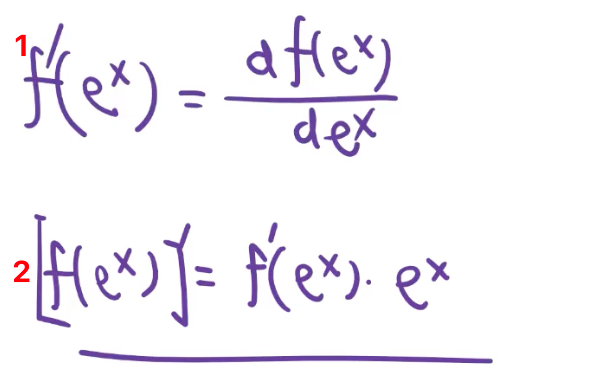 1 f'(e^x) = \frac{d f(e^x)}{d e^x}
2 [f(e^x)]' = f'(e^x) · e^x